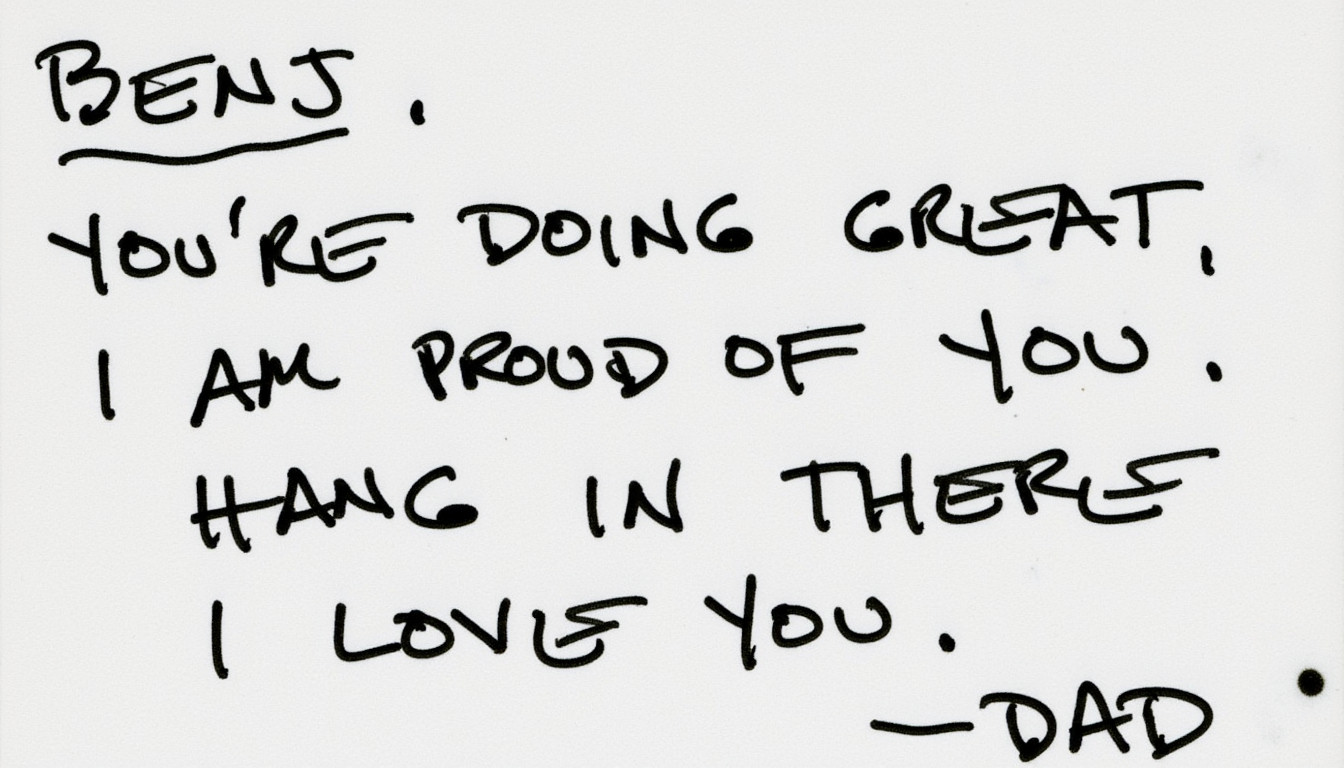 BENJ.
YOU'RE DOING GREAT.
I AM PROUD OF YOU.
HANG IN THERE
I LOVE YOU.
—DAD